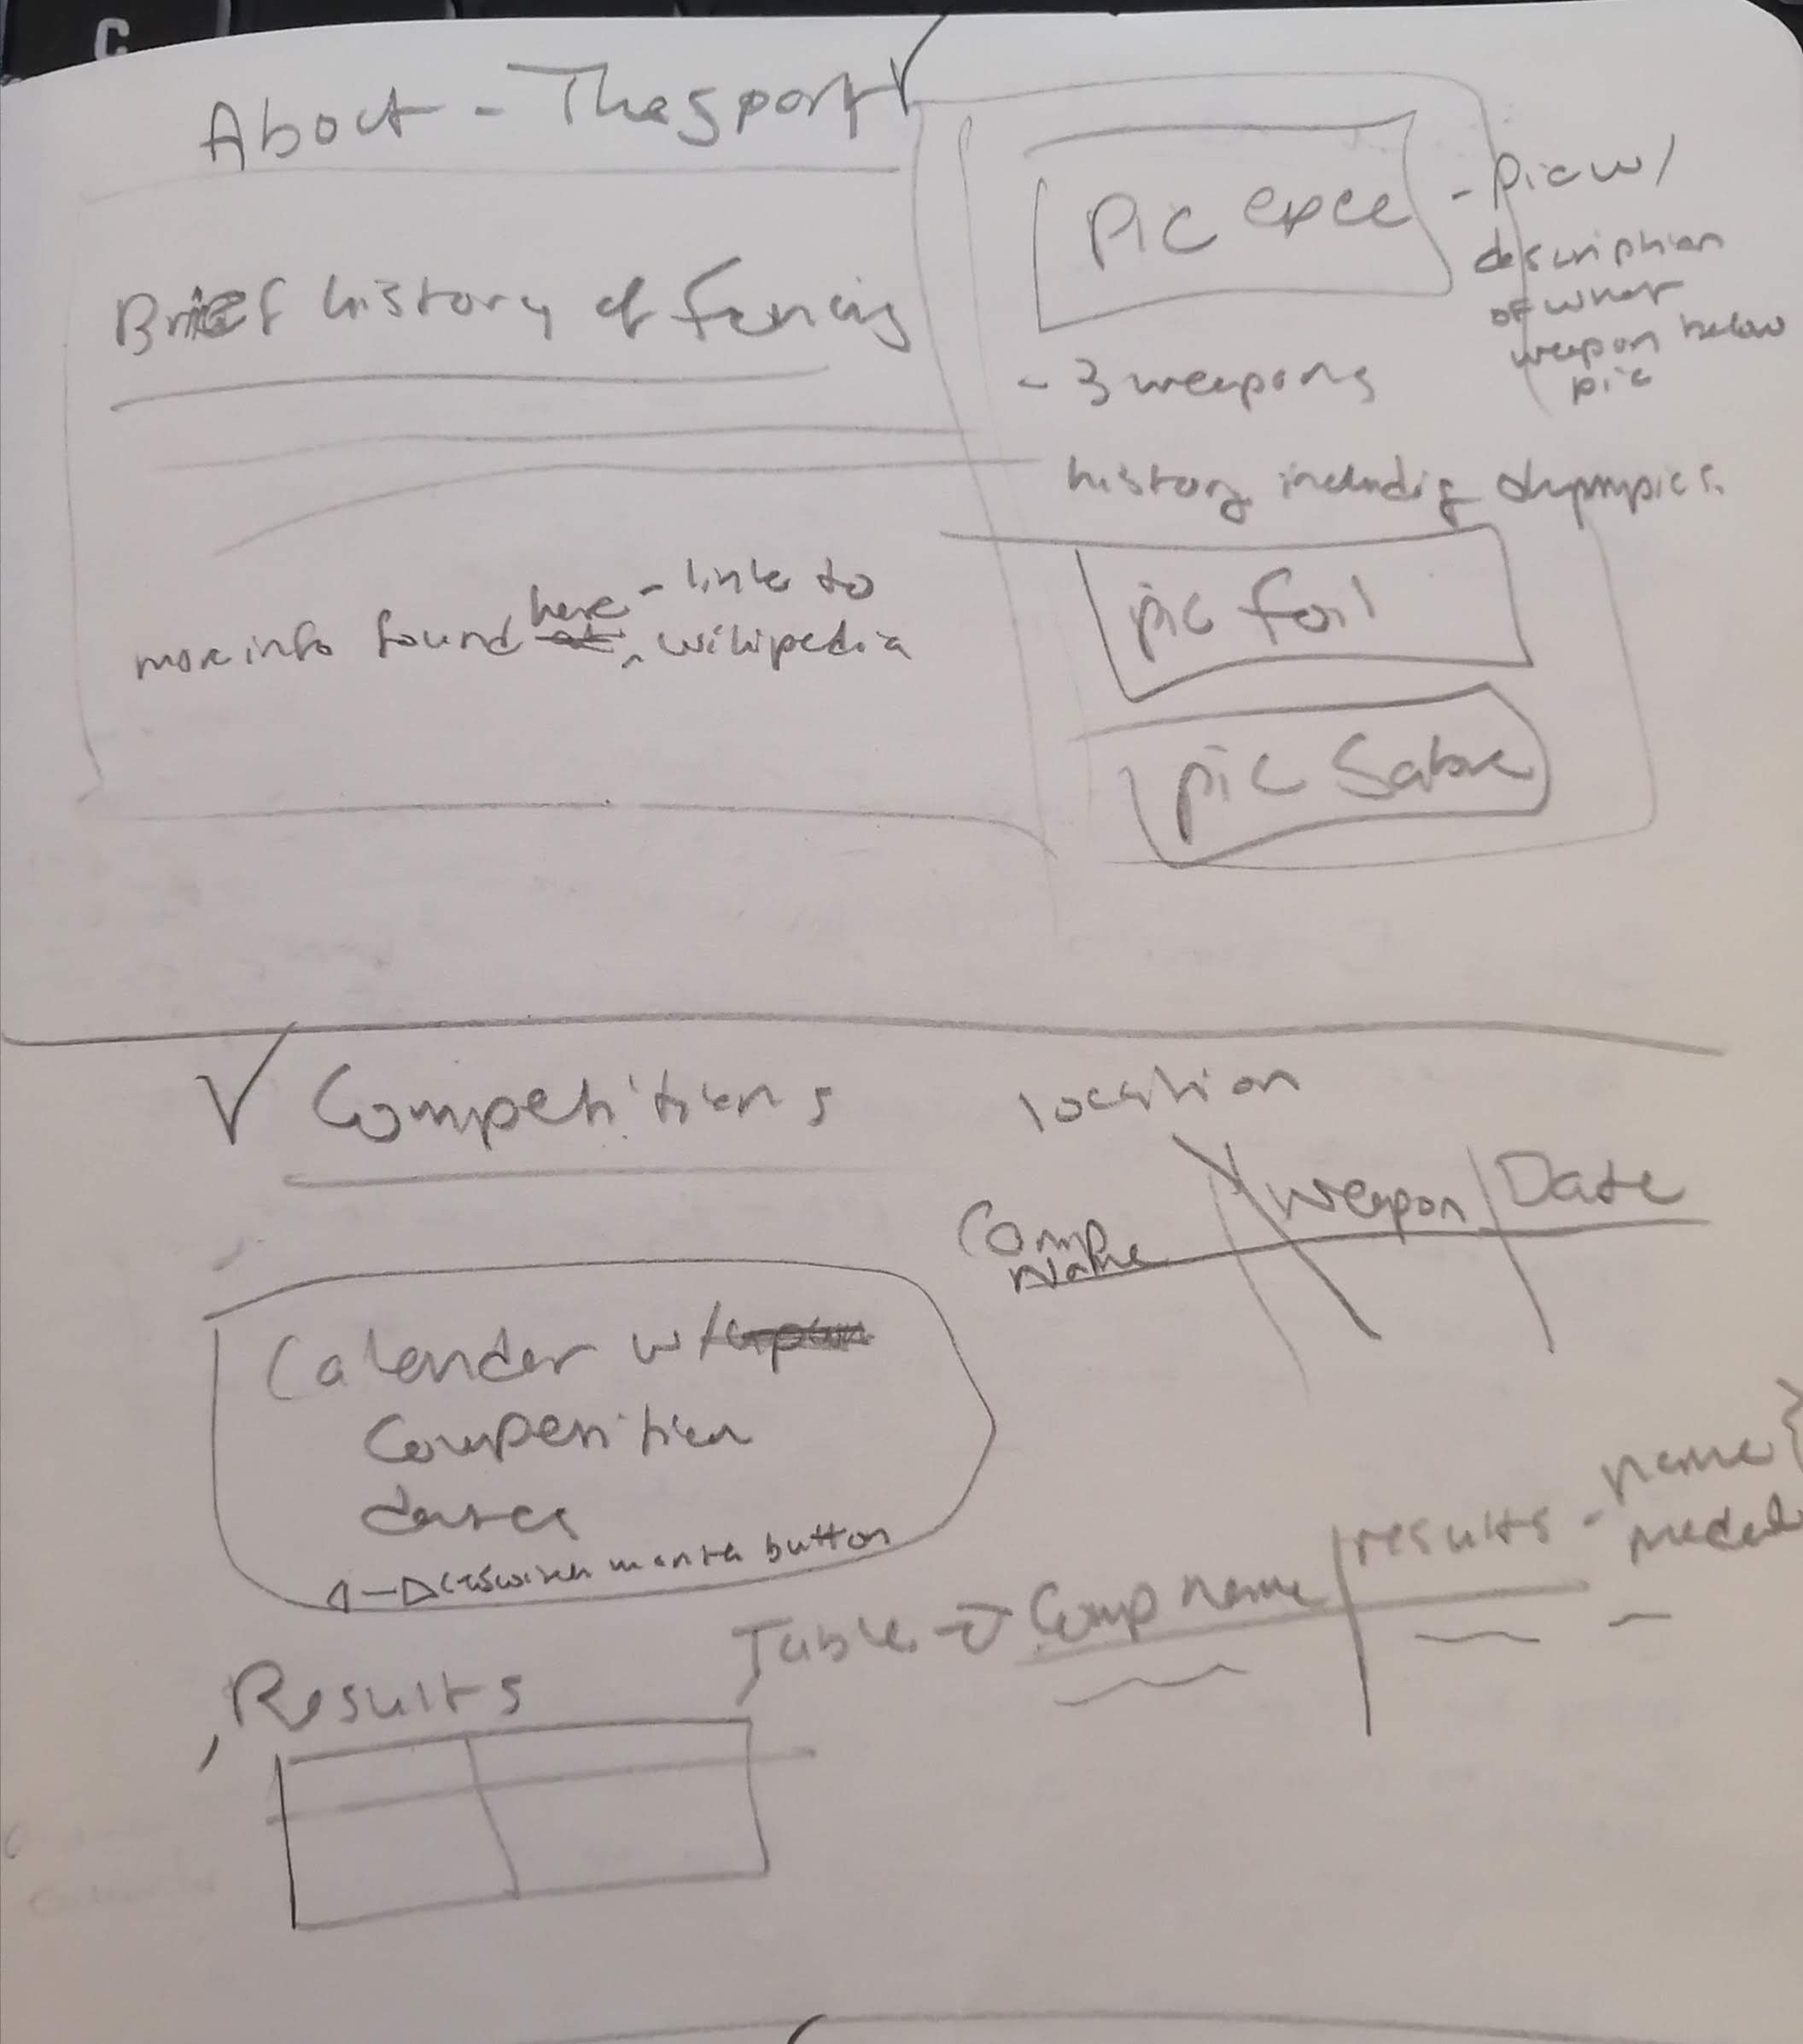 C
About - The sport
Brief history of fencing
more info found here - link to
wikipedia
pic epee
- pic w/
description
of what
weapon below
pic
- 3 weapons
history including olympics.
pic foil
pic Sabre
Competitions
location
Comp
Name
weapon
Date
Calender w/
Competition
dates
switch month button
Results
Table
Comp name
results - name
medal